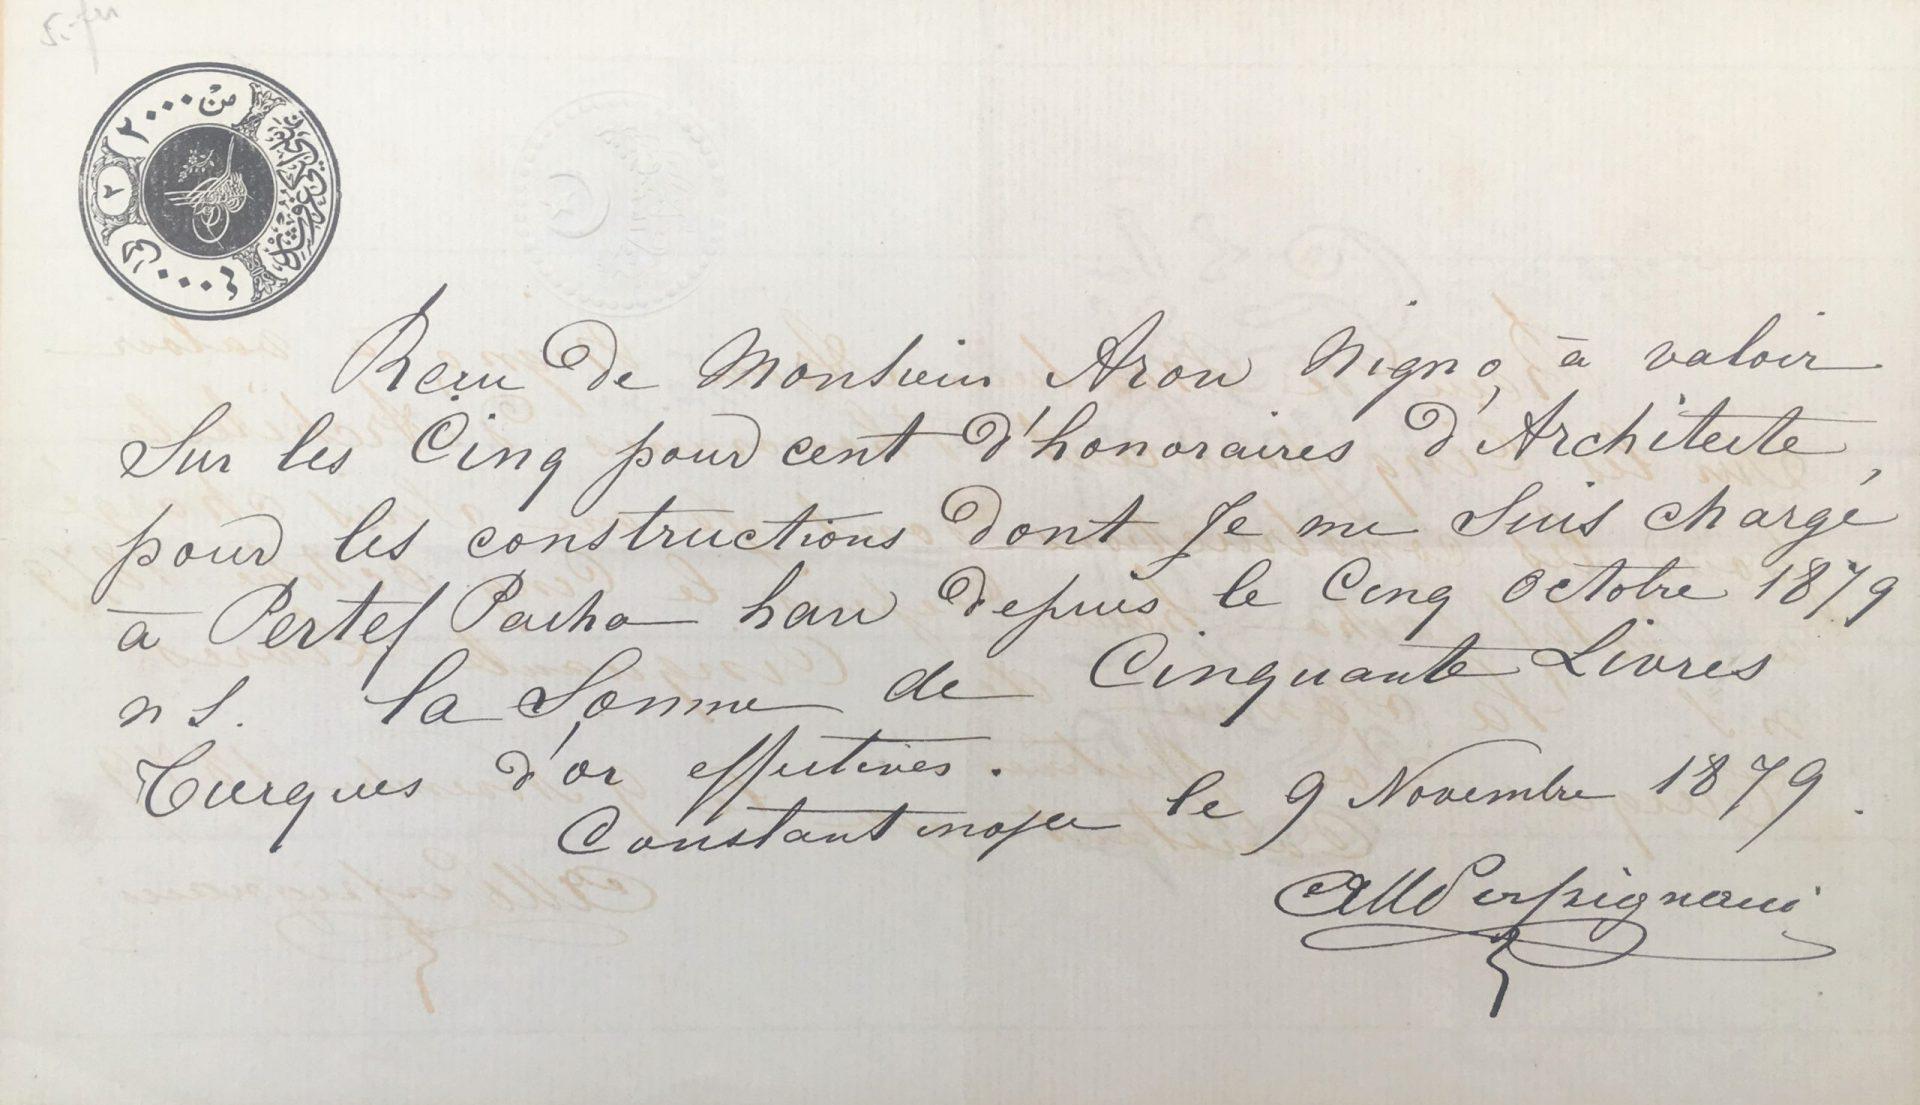 من ٢٠٠٠
٢
Reçu de Monsieur Aron Nigro, à valoir
Sur les Cinq pour cent d'honoraires d'Architecte,
pour les constructions dont Je me Suis chargé
à Pertef Pacha han depuis le Cinq Octobre 1879
n S. la Somme de Cinquante Livres
Turques d'or effectives.
Constantinople le 9 Novembre 1879.
Perpignani